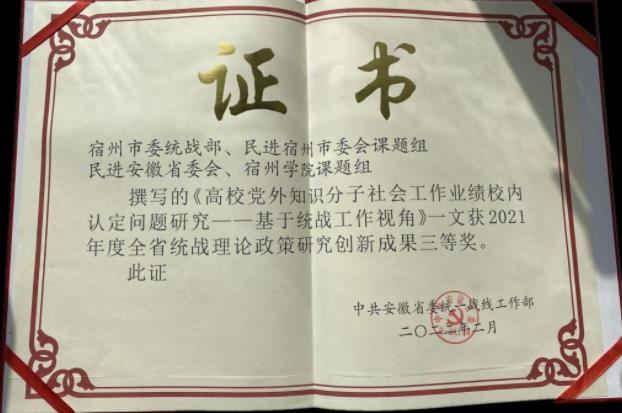 证 书
宿州市委统战部、民进宿州市委会课题组
民进安徽省委会、宿州学院课题组
撰写的《高校党外知识分子社会工作业绩校内
认定问题研究——基于统战工作视角》一文获2021
年度全省统战理论政策研究创新成果三等奖。
此证
中共安徽省委统一战线工作部
二〇二二年二月